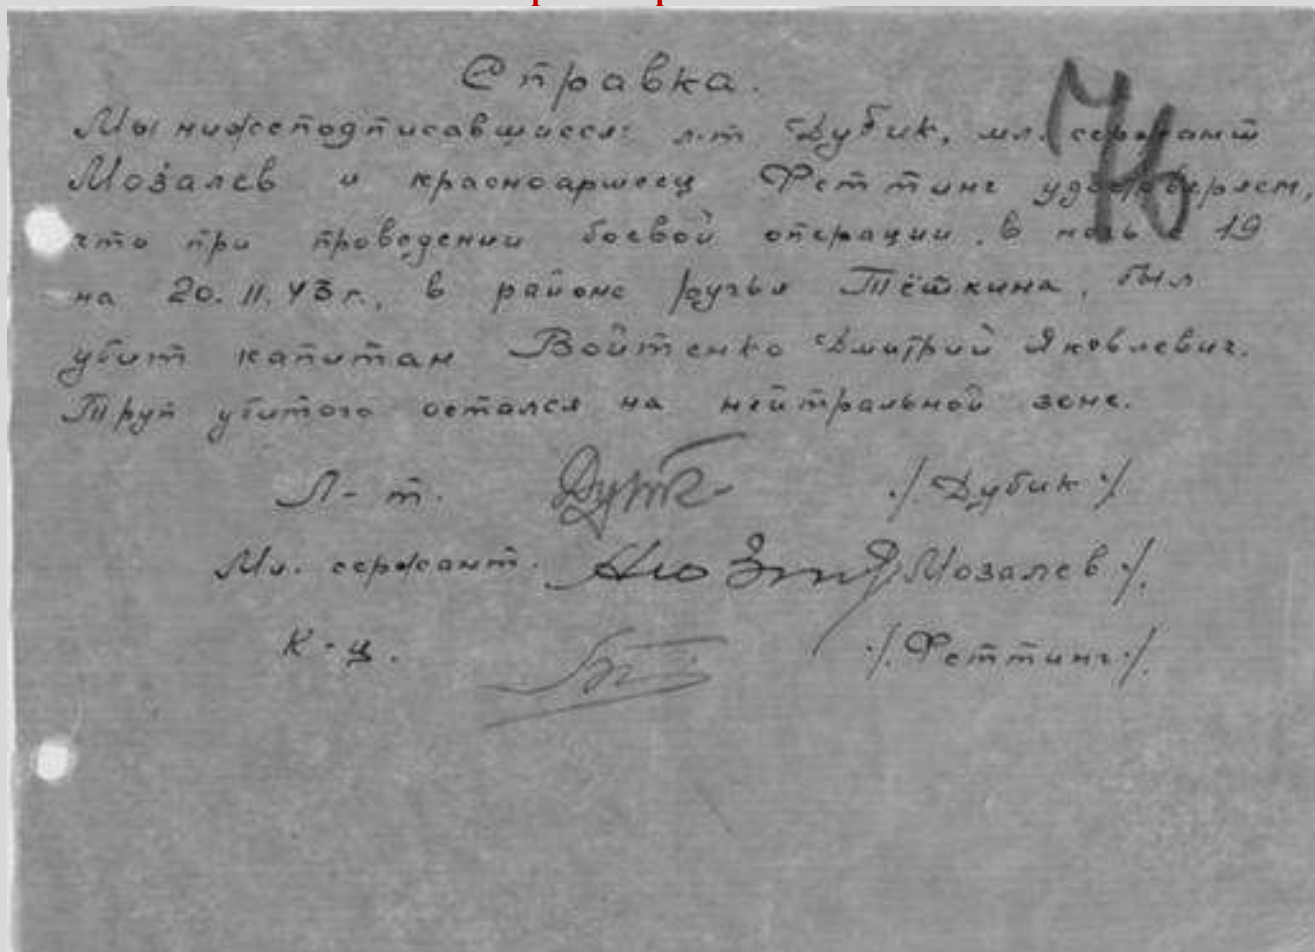 Справка.
76
Мы нижеподписавшиеся: л-т Дубик, мл. сержант
Мозалев и красноармеец Феттинг удостоверяем,
что при проведении боевой операции, в ночь с 19
на 20.11.43 г., в районе ручья Тёткина, был
убит капитан Войтенко Дмитрий Яковлевич.
Труп убитого остался на нейтральной зоне.
Л-т. /Дубик/
Мл. сержант. /Мозалев/.
К-ц. /Феттинг/.